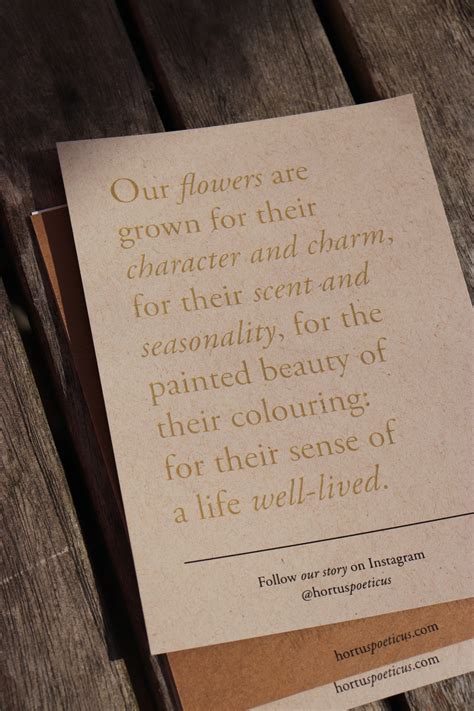 Our flowers are
grown for their
character and charm,
for their scent and
seasonality, for the
painted beauty of
their colouring:
for their sense of
a life well-lived.
Follow our story on Instagram
@hortuspoeticus
hortuspoeticus.com
hortuspoeticus.com